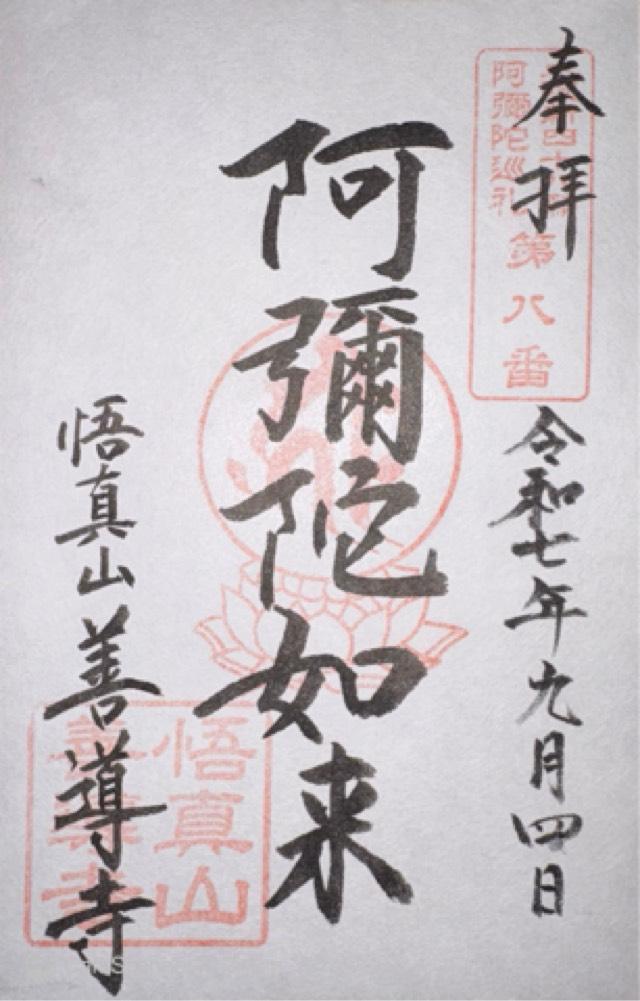 奉拝
令和七年九月四日
阿彌陀巡礼
第八番
阿彌陀如来
悟真山善導寺
悟真山
善導寺